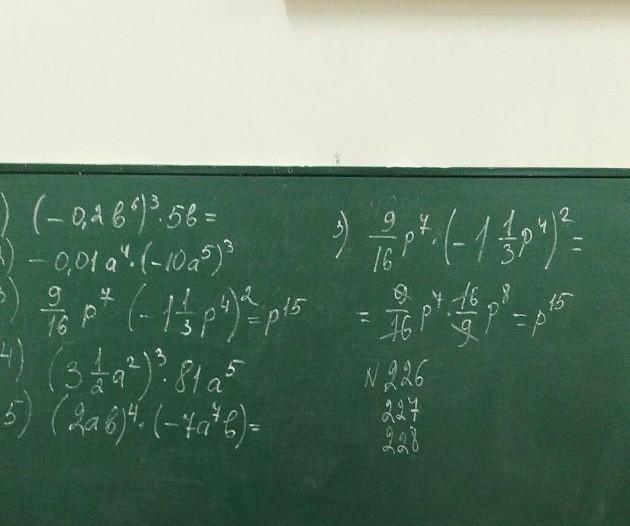 1) (-0,2b⁶)³·5b=
2) -0,01a⁴·(-10a⁵)³
3) 9/16 p⁷ (-1 1/3 p⁴)²=p¹⁵
4) (3 1/2 a²)³·81a⁵
5) (2ab)⁴·(-7a⁷b)=
3) 9/16 p⁷·(-1 1/3 p⁴)²=
= 9/16 p⁷·16/9 p⁸=p¹⁵
N 226
227
228